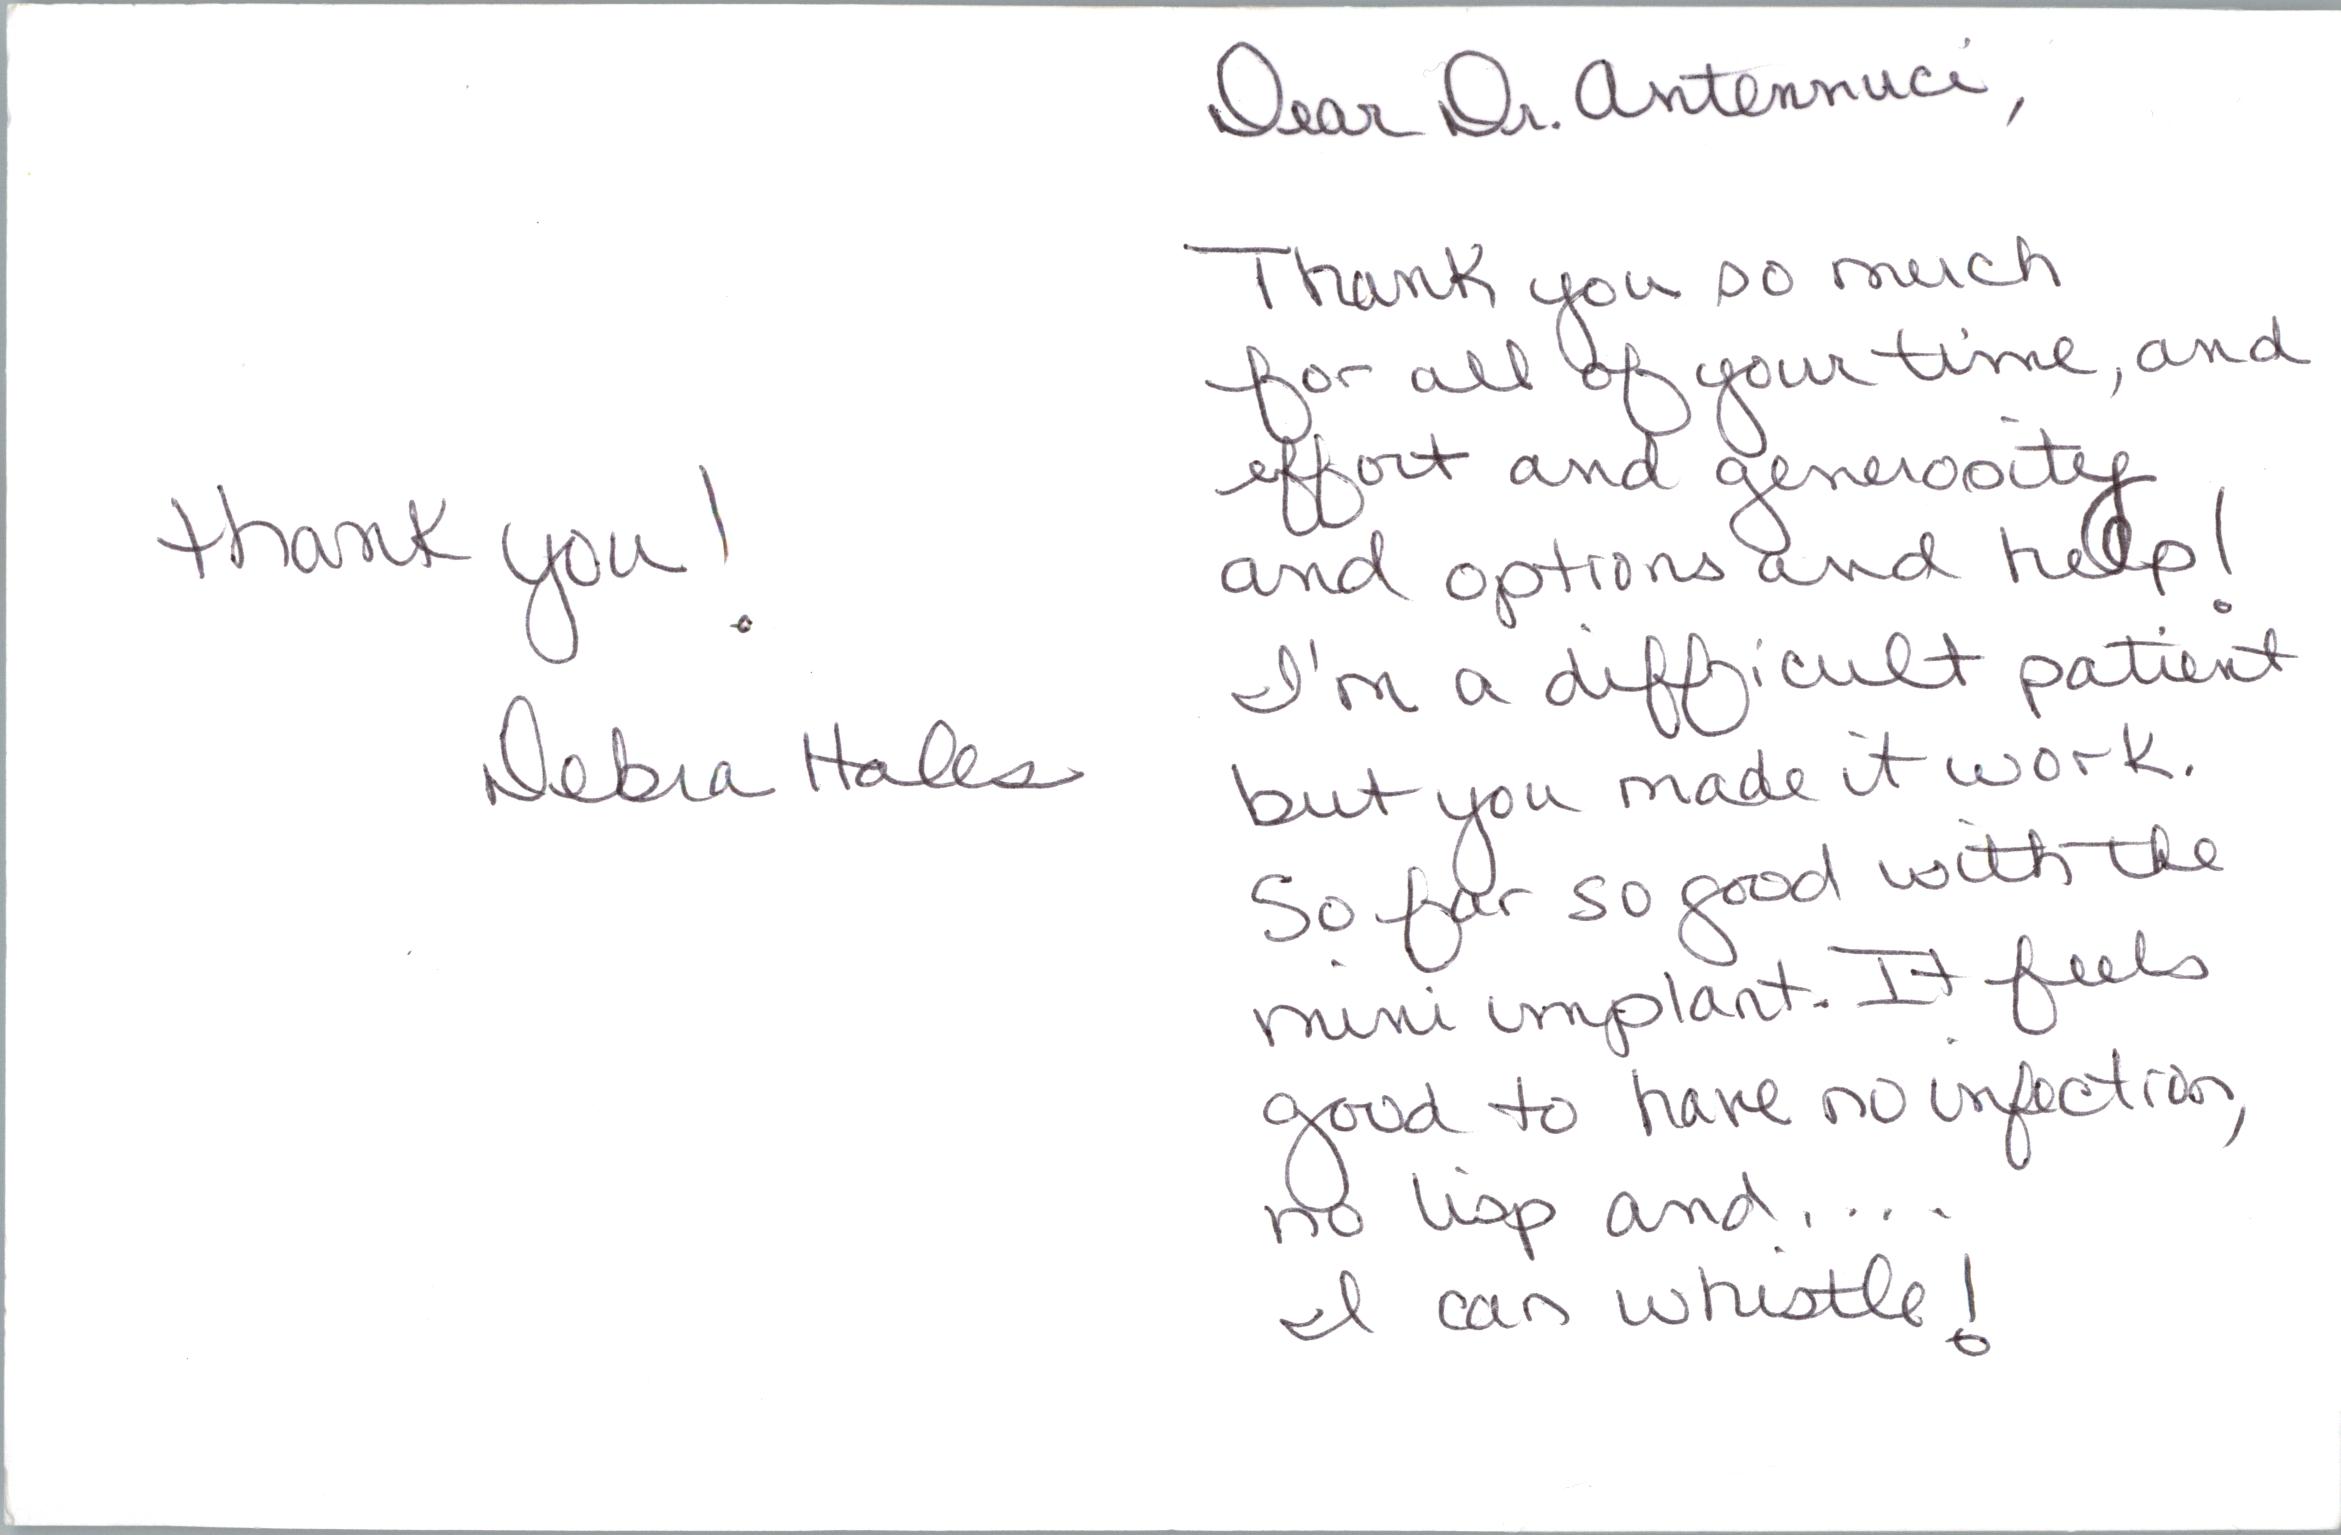 Dear Dr. Antennuci,
Thank you so much
for all of your time, and
effort and generosity
and options and help!
I'm a difficult patient
but you made it work.
So far so good with the
mini implant. It feels
good to have no infection,
no lisp and....
I can whistle!
thank you!
Debra Hales